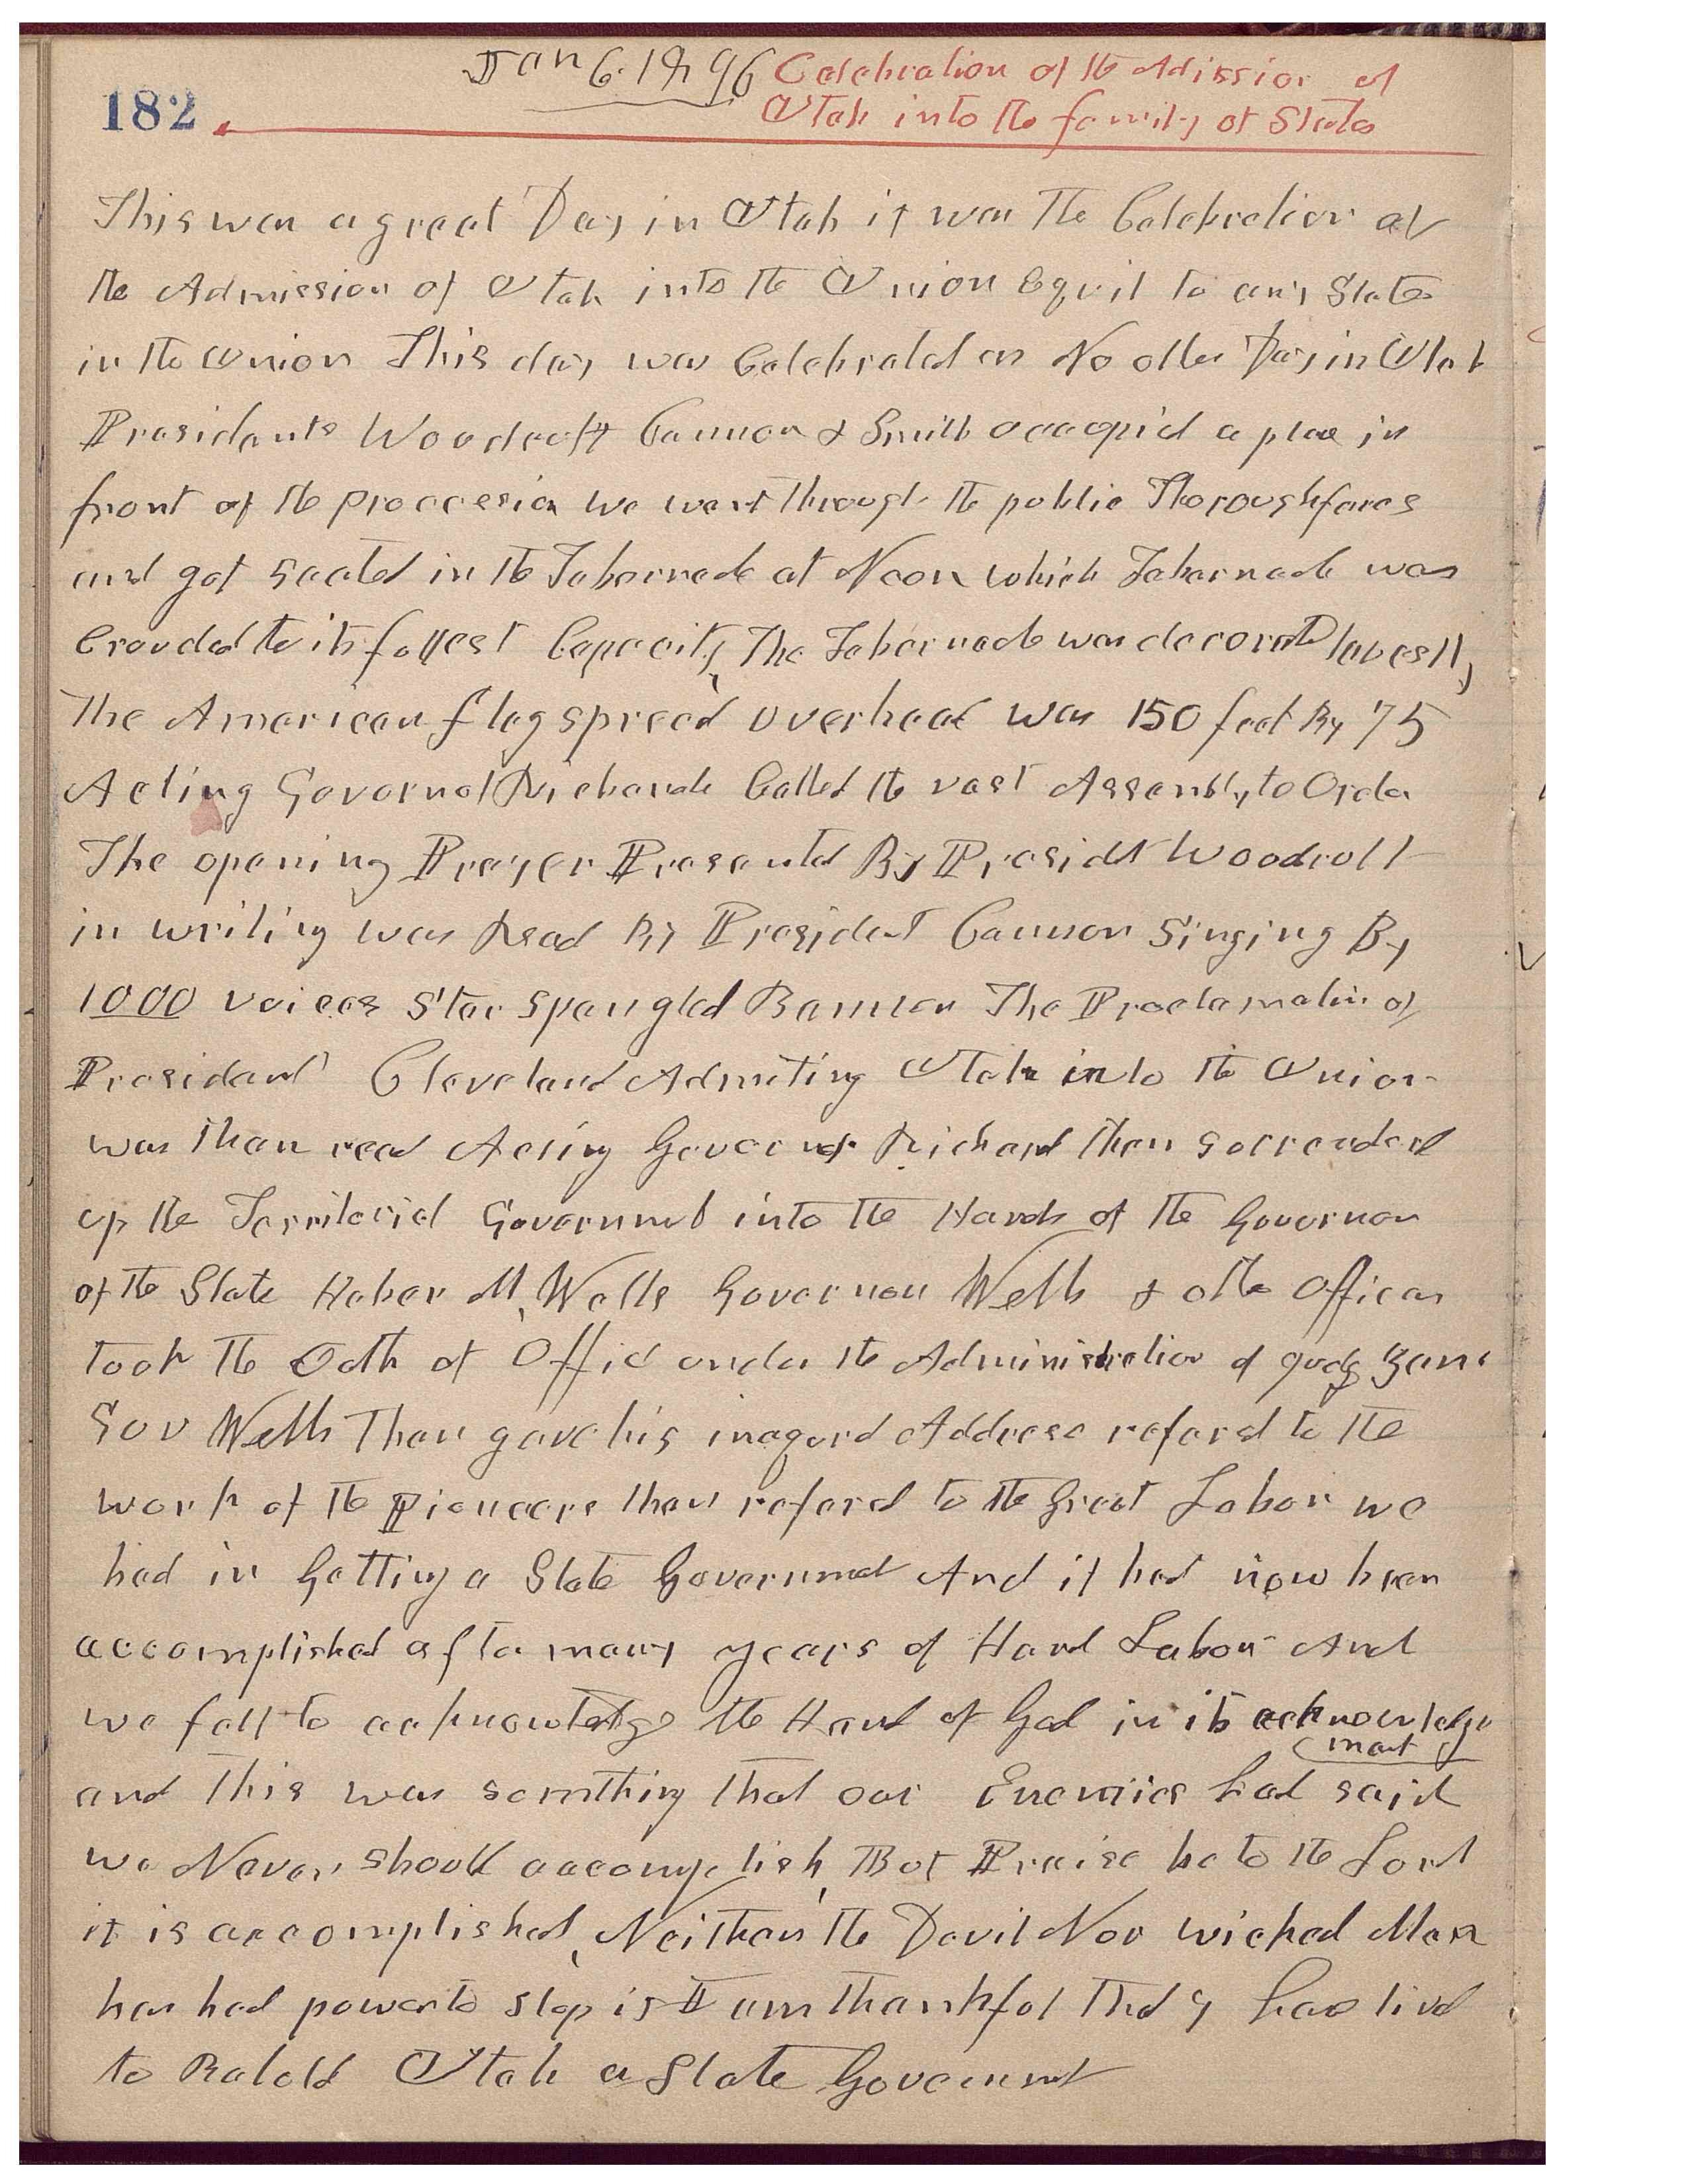 182
Jan 6 1896 Celebration of the Adission of
Utah into the family of States
This was a great Day in Utah it was the Celebration of
the Admission of Utah into the Union Equil to any State
in the Union This day was Celebrated as No other Day in Utah
Presidents Woodruff Cannon & Smith occopid a place in
front of the proccesion we went through the public Thoroughfares
and got seated in the Tabernacle at Noon which Tabernacle was
Crouded to its fullest Capacity, The Tabernacle was decorated laveslly
The American flag spread overhead was 150 feet By 75
Acting Governor Richards Called the vast Assembly to Order
The opening Prayer Presented By Presidt Woodruff
in writing was Read By President Cannon Singing By
1000 voices Star Spangled Banner The Proclamation of
President Cleveland Admiting Utah into the Union
was then read Acting Governor Richard then surrendered
up the Territorial Governmet into the Hands of the Governor
of the State Heber M, Wells Governor Wells & other Officers
took the Oath of Offic under the Administration of Judg Zane
Gov Wells Then gave his inagurd Address referd to the
work of the Pioneers then referd to the Great Labor we
had in Getting a State Government And it had now been
accomplished after many years of Hard Labor And
we felt to acknowledge the Hand of God in its acknowledge
ment
and this was somthing that our Enemies had said
we Never should accomplish, But Praise be to the Lord
it is accomplished, Neither the Devil Nor wicked Men
has had power to stop it I am thankful that I have livd
to Behold Utah a State Government